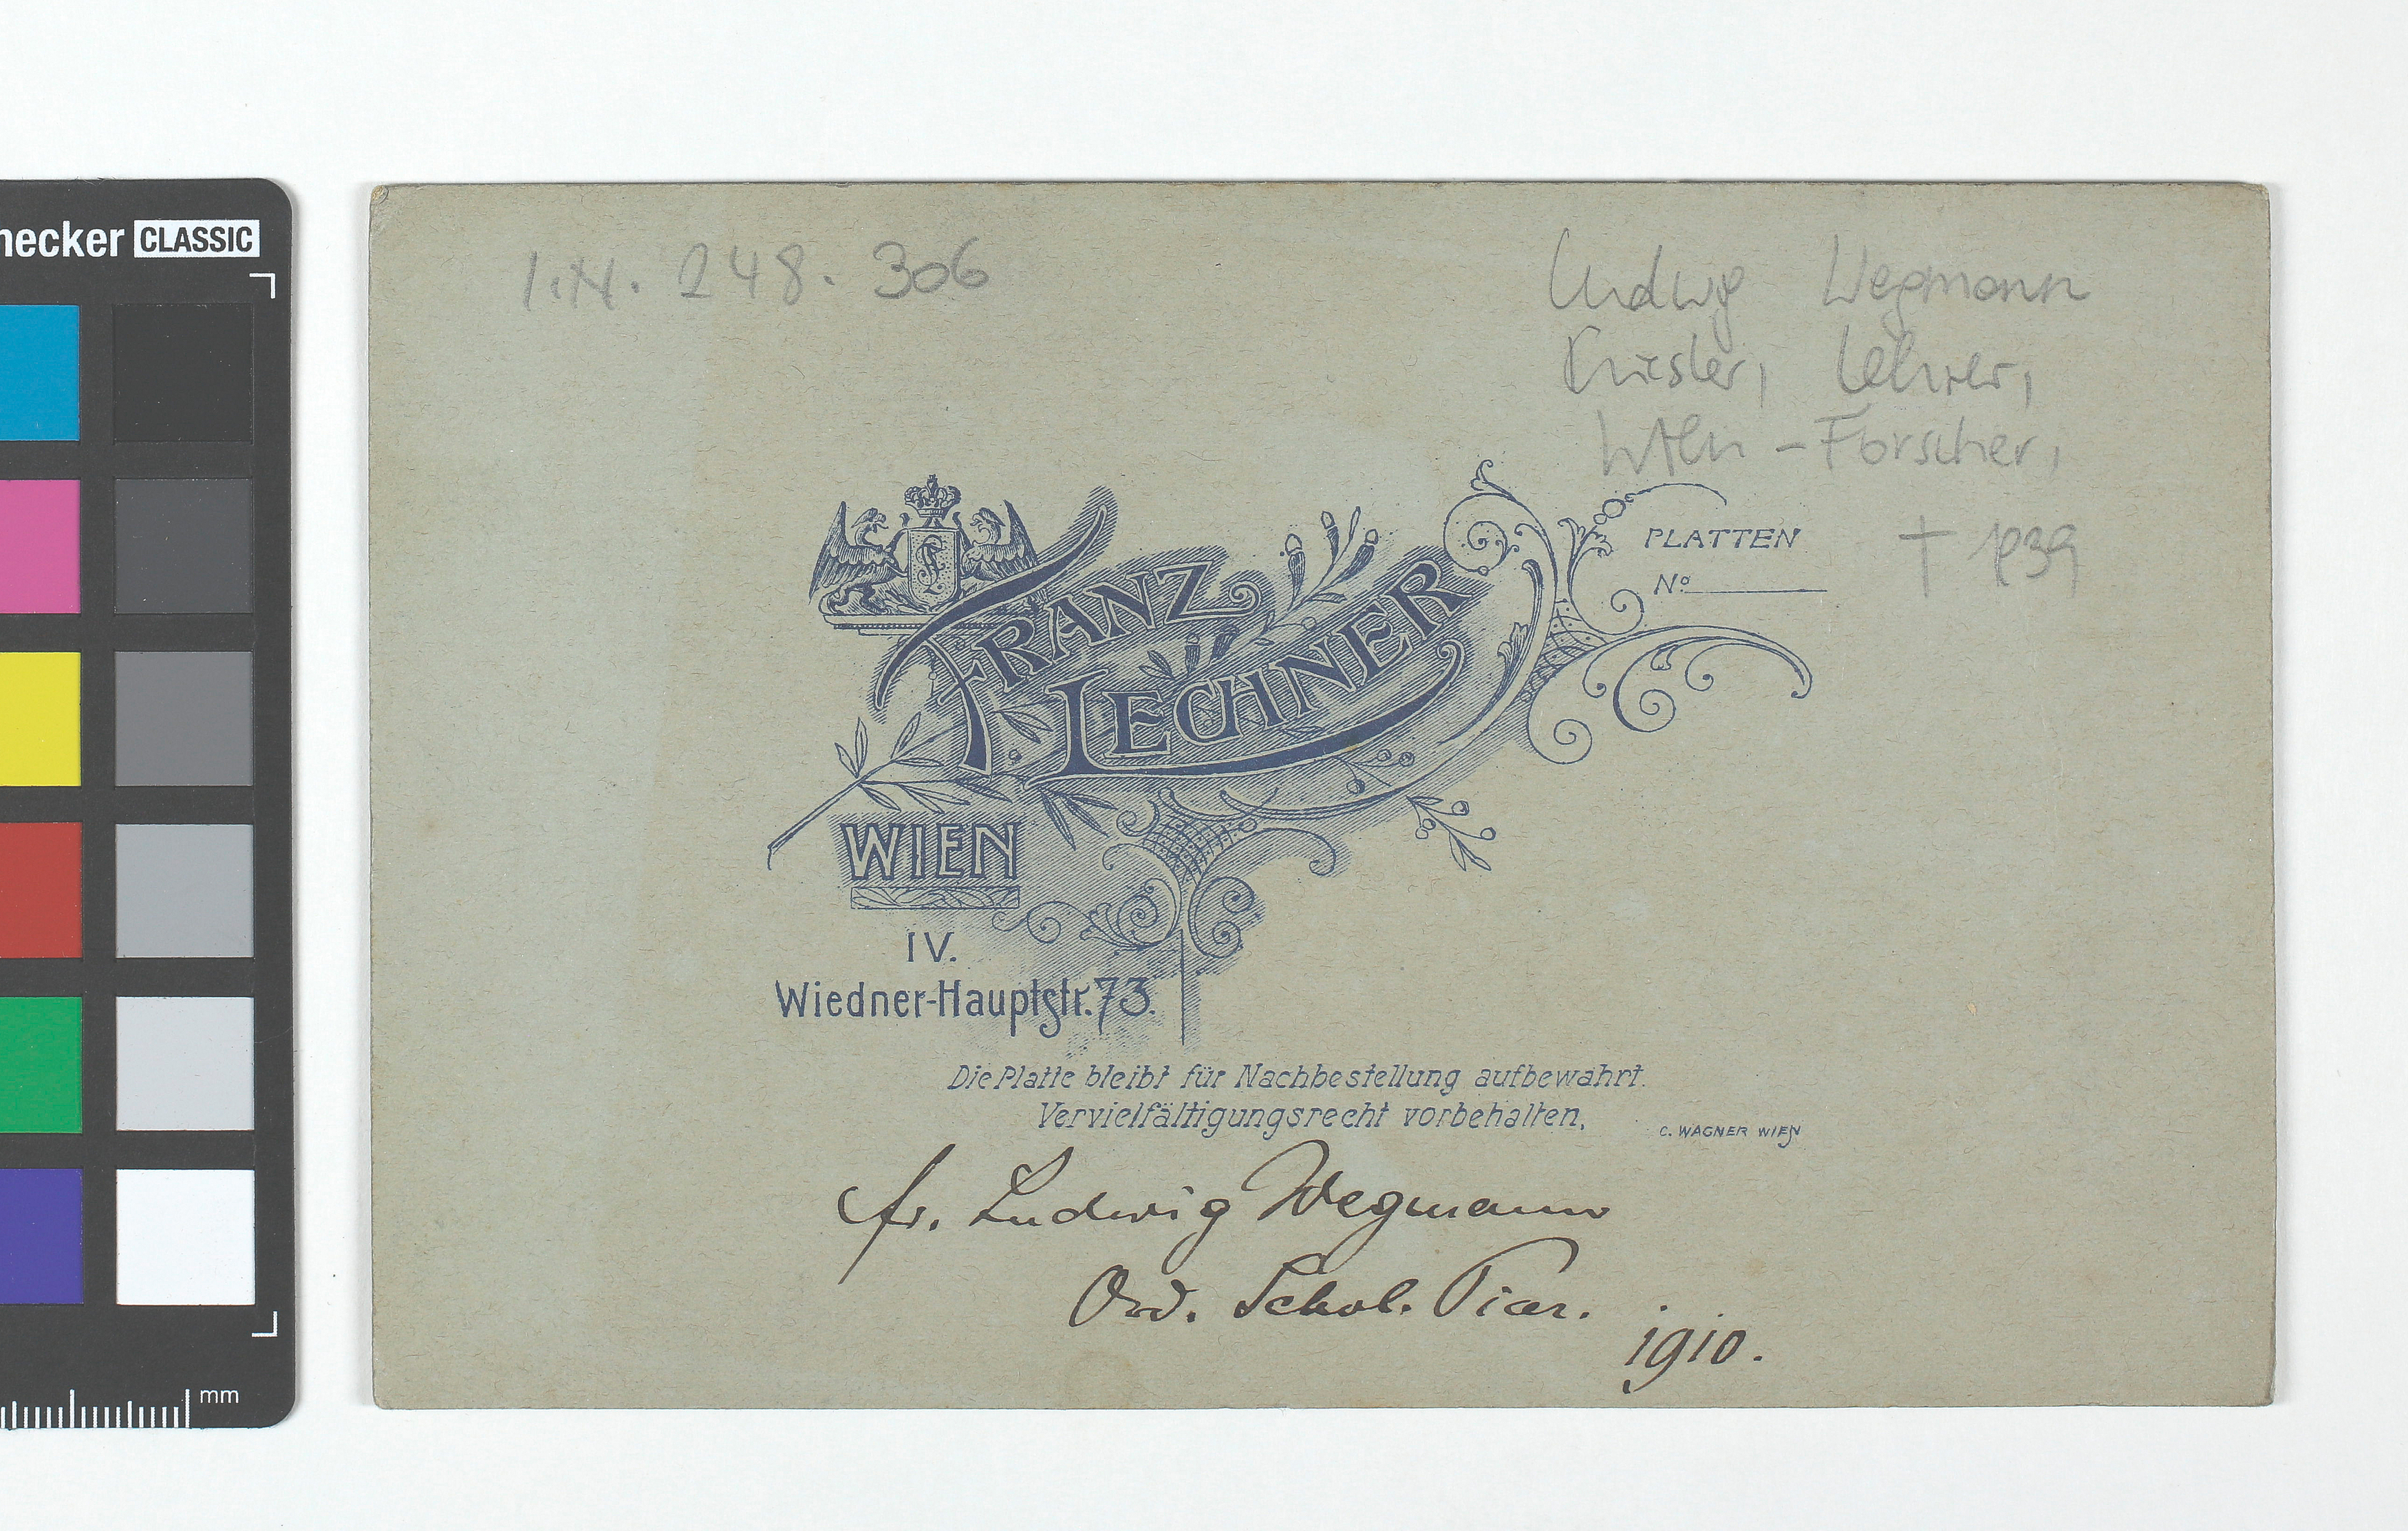 necker CLASSIC
I.N. 248.306
Ludwig Wegmann
Priester, Lehrer,
Wien-Forscher,
† 1939
PLATTEN
Nº
FRANZ
LECHNER
WIEN
IV.
Wiedner-Hauptstr. 73.
Die Platte bleibt für Nachbestellung aufbewahrt.
Vervielfältigungsrecht vorbehalten.
C. WAGNER WIEN
fr. Ludwig Wegmann
Ord. Schol. Piar.
1910.
mm